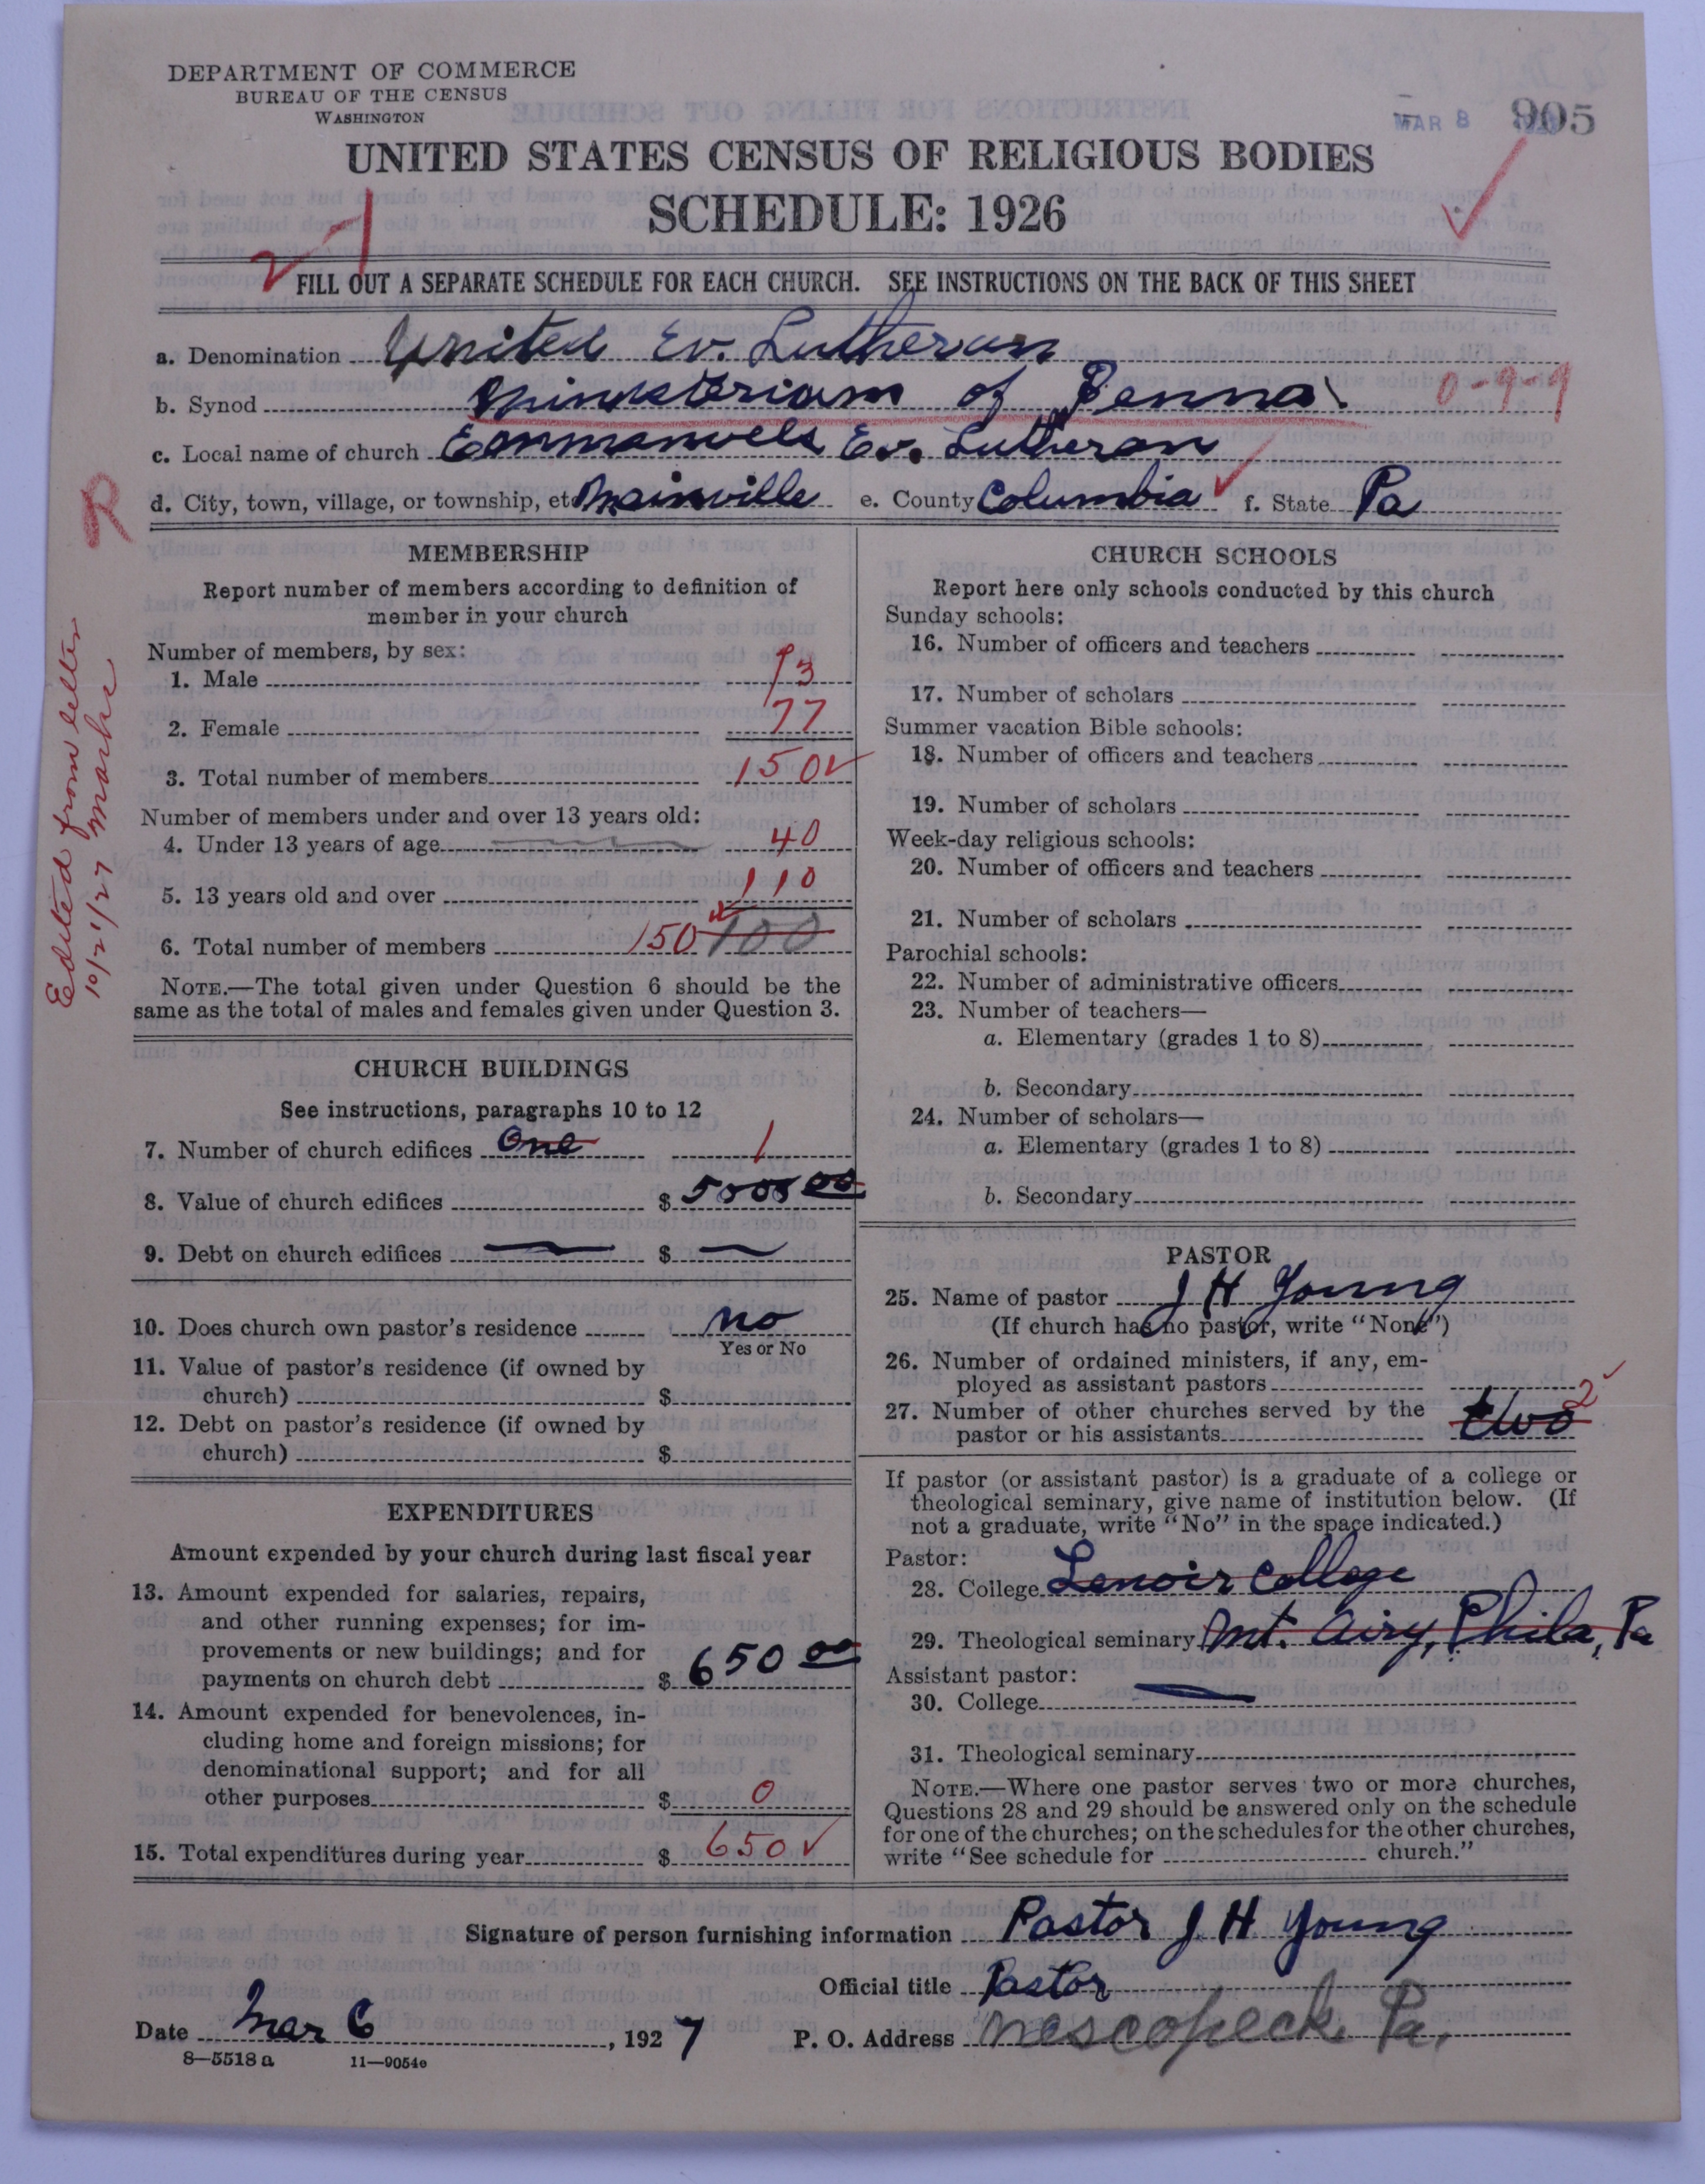 DEPARTMENT OF COMMERCE
BUREAU OF THE CENSUS
WASHINGTON
MAR 8
905
UNITED STATES CENSUS OF RELIGIOUS BODIES
SCHEDULE: 1926
2-1
FILL OUT A SEPARATE SCHEDULE FOR EACH CHURCH. SEE INSTRUCTIONS ON THE BACK OF THIS SHEET
a. Denomination United Ev. Lutheran
b. Synod Ministerium of Penna. 0-9-9
c. Local name of church Emmanuels Ev. Lutheran
d. City, town, village, or township, etc Mainville e. County Columbia f. State Pa
R
Edited from letter
10/21/27
MEMBERSHIP
Report number of members according to definition of
member in your church
Number of members, by sex:
1. Male 73
2. Female 77
3. Total number of members 150
Number of members under and over 13 years old:
4. Under 13 years of age 40
5. 13 years old and over 110
6. Total number of members 150 100
NOTE.—The total given under Question 6 should be the
same as the total of males and females given under Question 3.
CHURCH BUILDINGS
See instructions, paragraphs 10 to 12
7. Number of church edifices One 1
8. Value of church edifices $ 5000 00
9. Debt on church edifices — $ —
10. Does church own pastor's residence no
Yes or No
11. Value of pastor's residence (if owned by
church) $
12. Debt on pastor's residence (if owned by
church) $
EXPENDITURES
Amount expended by your church during last fiscal year
13. Amount expended for salaries, repairs,
and other running expenses; for im-
provements or new buildings; and for
payments on church debt $ 650 00
14. Amount expended for benevolences, in-
cluding home and foreign missions; for
denominational support; and for all
other purposes $ 0
15. Total expenditures during year $ 650
CHURCH SCHOOLS
Report here only schools conducted by this church
Sunday schools:
16. Number of officers and teachers
17. Number of scholars
Summer vacation Bible schools:
18. Number of officers and teachers
19. Number of scholars
Week-day religious schools:
20. Number of officers and teachers
21. Number of scholars
Parochial schools:
22. Number of administrative officers
23. Number of teachers—
a. Elementary (grades 1 to 8)
b. Secondary
24. Number of scholars—
a. Elementary (grades 1 to 8)
b. Secondary
PASTOR
25. Name of pastor J H Young
(If church has no pastor, write "None")
26. Number of ordained ministers, if any, em-
ployed as assistant pastors
27. Number of other churches served by the
pastor or his assistants two 2
If pastor (or assistant pastor) is a graduate of a college or
theological seminary, give name of institution below. (If
not a graduate, write "No" in the space indicated.)
Pastor:
28. College Lenoir College
29. Theological seminary Mt. Airy, Phila, Pa
Assistant pastor:
30. College —
31. Theological seminary
NOTE.—Where one pastor serves two or more churches,
Questions 28 and 29 should be answered only on the schedule
for one of the churches; on the schedules for the other churches,
write "See schedule for church."
Signature of person furnishing information Pastor J H Young
Official title Pastor
Date Mar 6, 1927 P. O. Address Nescopeck Pa.
8—5518 a 11—9054e